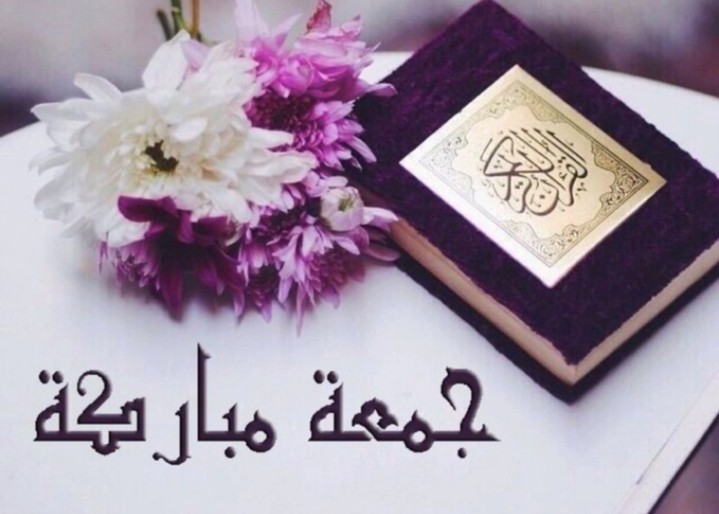 القرآن الكريم
جمعة مباركة